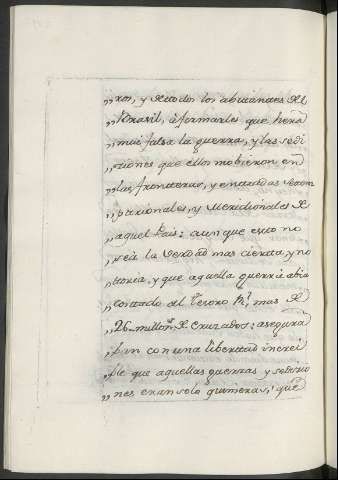 „ros, y de todos los abitantes del
„Brasil, aformarles que hera
„mui falsa la guerra, y las sedi
„ciones que ellos mobieron en
„las fronteras, y en todas
„ptrionales, y Meridionales de
„aquel Pais: aunque esto no
„sea la verdad mas cierta, y no
„toria, y que aquella guerra abia
„costado al Tesoro Rl. mas de
„26 millon.s de Cruzados: asegura
„ban con una libertad increi
„ble que aquellas guerras y sedicio
„nes eran solo quimeras, que